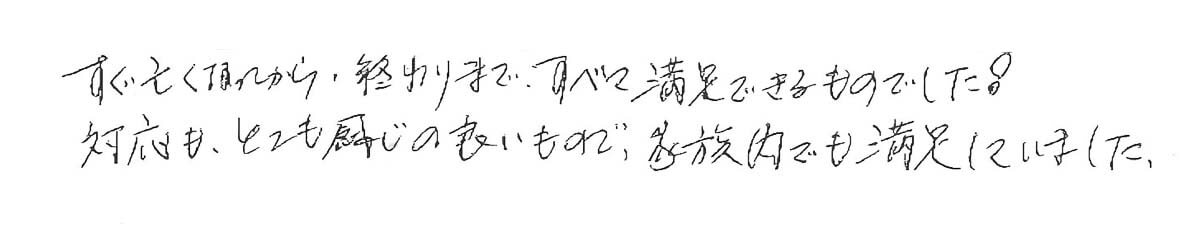 すぐ から、終わりまで、すべて満足できるものでした!
対応も、とても感じの良いもので、家族内でも満足していました、